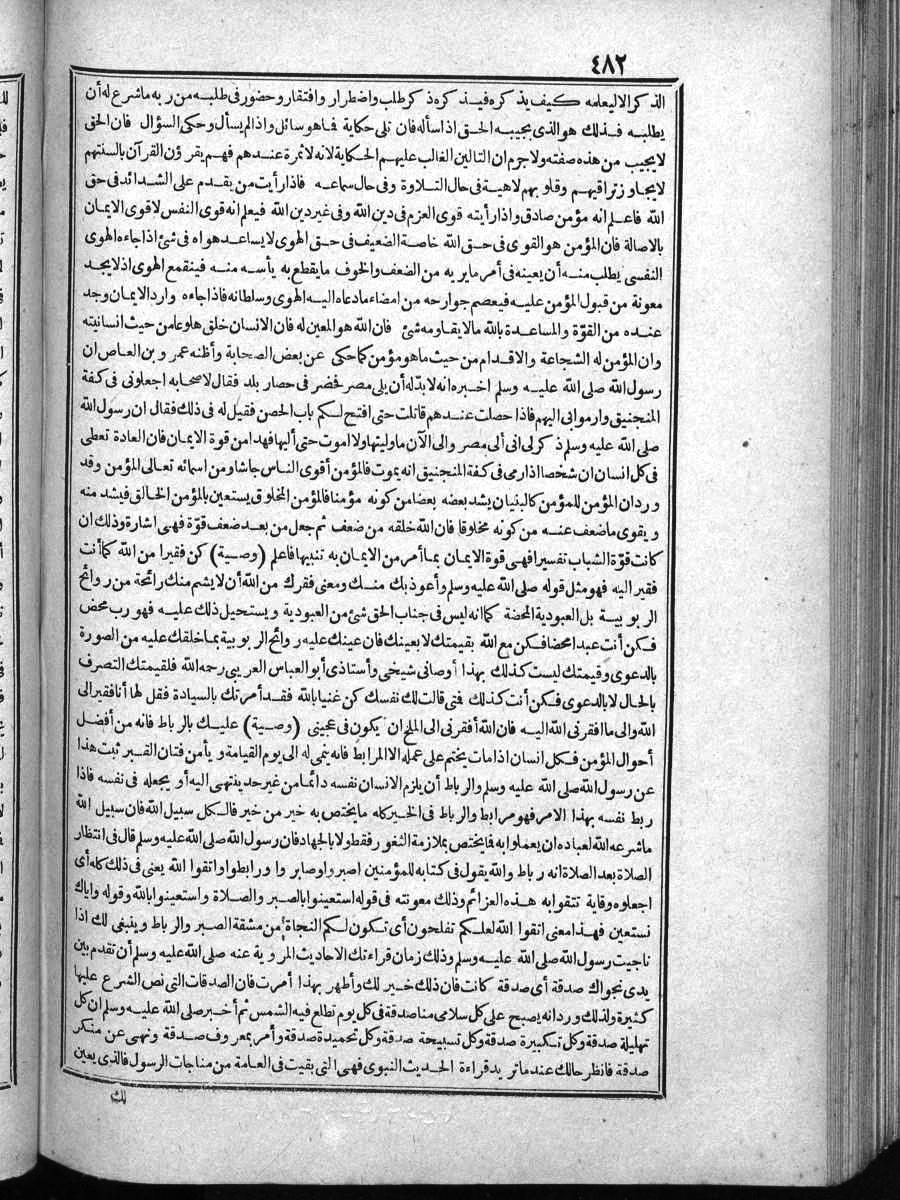 ٤٨٢
الذكر الا ليعلمه كيف يذكره فيذكره ذكر طلب واضطرار وافتقار وحضور فى طلبه من ربه ما شرع له أن
يطلبه فذلك هو الذى يجيبه الحق اذا سأله فان تلى حكاية فما هو سائل واذا لم يسأل وحكى السؤال فان الحق
لا يجيب من هذه صفته ولا جرم ان التالين الغالب عليهم الحكاية لانه لا ثمرة عندهم فهم يقرؤن القرآن بالسنتهم
لا يجاوز تراقيهم وقلوبهم لاهية فى حال التلاوة وفى حال سماعه فاذا رأيت من يقدم على الشدائد فى حق
الله فاعلم انه مؤمن صادق واذا رأيته قوى العزم فى دين الله وفى غير دين الله فيعلم انه قوى النفس لا قوى الايمان
بالاصالة فان المؤمن هو القوى فى حق الله خاصة الضعيف فى حق الهوى لا يساعد هواه فى شئ اذا جاءه الهوى
النفسى يطلب منه أن يعينه فى أمر ما يريه من الضعف والخوف ما يقطع به يأسه منه فينقمع الهوى اذ لا يجد
معونة من قبول المؤمن عليه فيعصم جوارحه من امضاء ما دعاه اليه الهوى وسلطانه فاذا جاءه وارد الايمان وجد
عنده من القوّة والمساعدة بالله ما لا يقاومه شئ فان الله هو المعين له فان الانسان خلق هلوعا من حيث انسانيته
وان المؤمن له الشجاعة والاقدام من حيث ما هو مؤمن كما حكى عن بعض الصحابة وأظنه عمرو بن العاص ان
رسول الله صلى الله عليه وسلم اخبره انه لا بد له أن يلى مصر فحضر فى حصار بلد فقال لاصحابه اجعلونى فى كفة
المنجنيق وارموا بى اليهم فاذا حصلت عندهم قاتلت حتى افتح لكم باب الحصن فقيل له فى ذلك فقال ان رسول الله
صلى الله عليه وسلم ذكر لى انى ألى مصر والى الآن ما وليتها ولا اموت حتى أليها فهذا من قوة الايمان فان العادة تعطى
فى كل انسان ان شخصا اذا رمى فى كفة المنجنيق انه يموت فالمؤمن أقوى الناس جاشا ومن اسمائه تعالى المؤمن وقد
ورد ان المؤمن للمؤمن كالبنيان يشد بعضه بعضا من كونه مؤمنا فالمؤمن المخلوق يستعين بالمؤمن الخالق فيشد منه
ويقوى ما ضعف عنه من كونه مخلوقا فان الله خلقه من ضعف ثم جعل من بعد ضعف قوّة فهى اشارة وذلك ان
كانت قوّة الشباب تفسيرا فهى قوة الايمان بما أمر من الايمان به تنبيها فاعلم (وصية) كن فقيرا من الله كما أنت
فقير اليه فهو مثل قوله صلى الله عليه وسلم وأعوذ بك منك ومعنى فقرك من الله أن لا يشم منك رائحة من روائح
الربوبية بل العبودية المحضة كما انه ليس فى جناب الحق شئ من العبودية ويستحيل ذلك عليه فهو رب محض
فكن أنت عبدا محضا فكن مع الله بقيمتك لا بعينك فان عينك عليه روائح الربوبية بما خلقك عليه من الصورة
بالدعوى وقيمتك ليست كذلك بهذا أوصانى شيخى وأستاذى أبو العباس العريبى رحمه الله فلقيمتك التصرف
بالحال لا بالدعوى فكن أنت كذلك فتى قالت لك نفسك كن غنيا بالله فقد أمرتك بالسيادة فقل لها أنا فقير الى
الله والى ما افقرنى الله اليه فان الله أفقرنى الى الملح ان يكون فى عجينى (وصية) عليك بالرباط فانه من أفضل
أحوال المؤمن فكل انسان اذا مات يختم على عمله الا المرابط فانه ينمى له الى يوم القيامة ويأمن فتان القبر ثبت هذا
عن رسول الله صلى الله عليه وسلم والرباط أن يلزم الانسان نفسه دائما من غير حد ينتهى اليه أو يجعله فى نفسه فاذا
ربط نفسه بهذا الامر فهو مرابط والرباط فى الخير كله ما يختص به خير من خير فالكل سبيل الله فان سبيل الله
ما شرعه الله لعباده ان يعملوا به فما يختص بملازمة الثغور فقط ولا بالجهاد فان رسول الله صلى الله عليه وسلم قال فى انتظار
الصلاة بعد الصلاة انه رباط والله يقول فى كتابه للمؤمنين اصبروا وصابروا ورابطوا واتقوا الله يعنى فى ذلك كله أى
اجعلوه وقاية تتقوا به هذه العزائم وذلك معونته فى قوله استعينوا بالصبر والصلاة واستعينوا بالله وقوله واياك
نستعين فهذا معنى اتقوا الله لعلكم تفلحون أى تكون لكم النجاة من مشقة الصبر والرباط وينبغى لك اذا
ناجيت رسول الله صلى الله عليه وسلم وذلك زمان قراءتك الاحاديث المروية عنه صلى الله عليه وسلم أن تقدم بين
يدى نجواك صدقة أى صدقة كانت فان ذلك خير لك وأطهر بهذا أمرت فان الصدقات التى نص الشرع عليها
كثيرة ولذلك ورد انه يصبح على كل سلامى منا صدقة فى كل يوم تطلع فيه الشمس ثم أخبر صلى الله عليه وسلم ان كل
تهليلة صدقة وكل تكبيرة صدقة وكل تسبيحة صدقة وكل تحميدة صدقة وأمر بمعروف صدقة ونهى عن منكر
صدقة فانظر حالك عندما تريد قراءة الحديث النبوى فهى التى بقيت فى العامة من مناجات الرسول فالذى يعين
لك